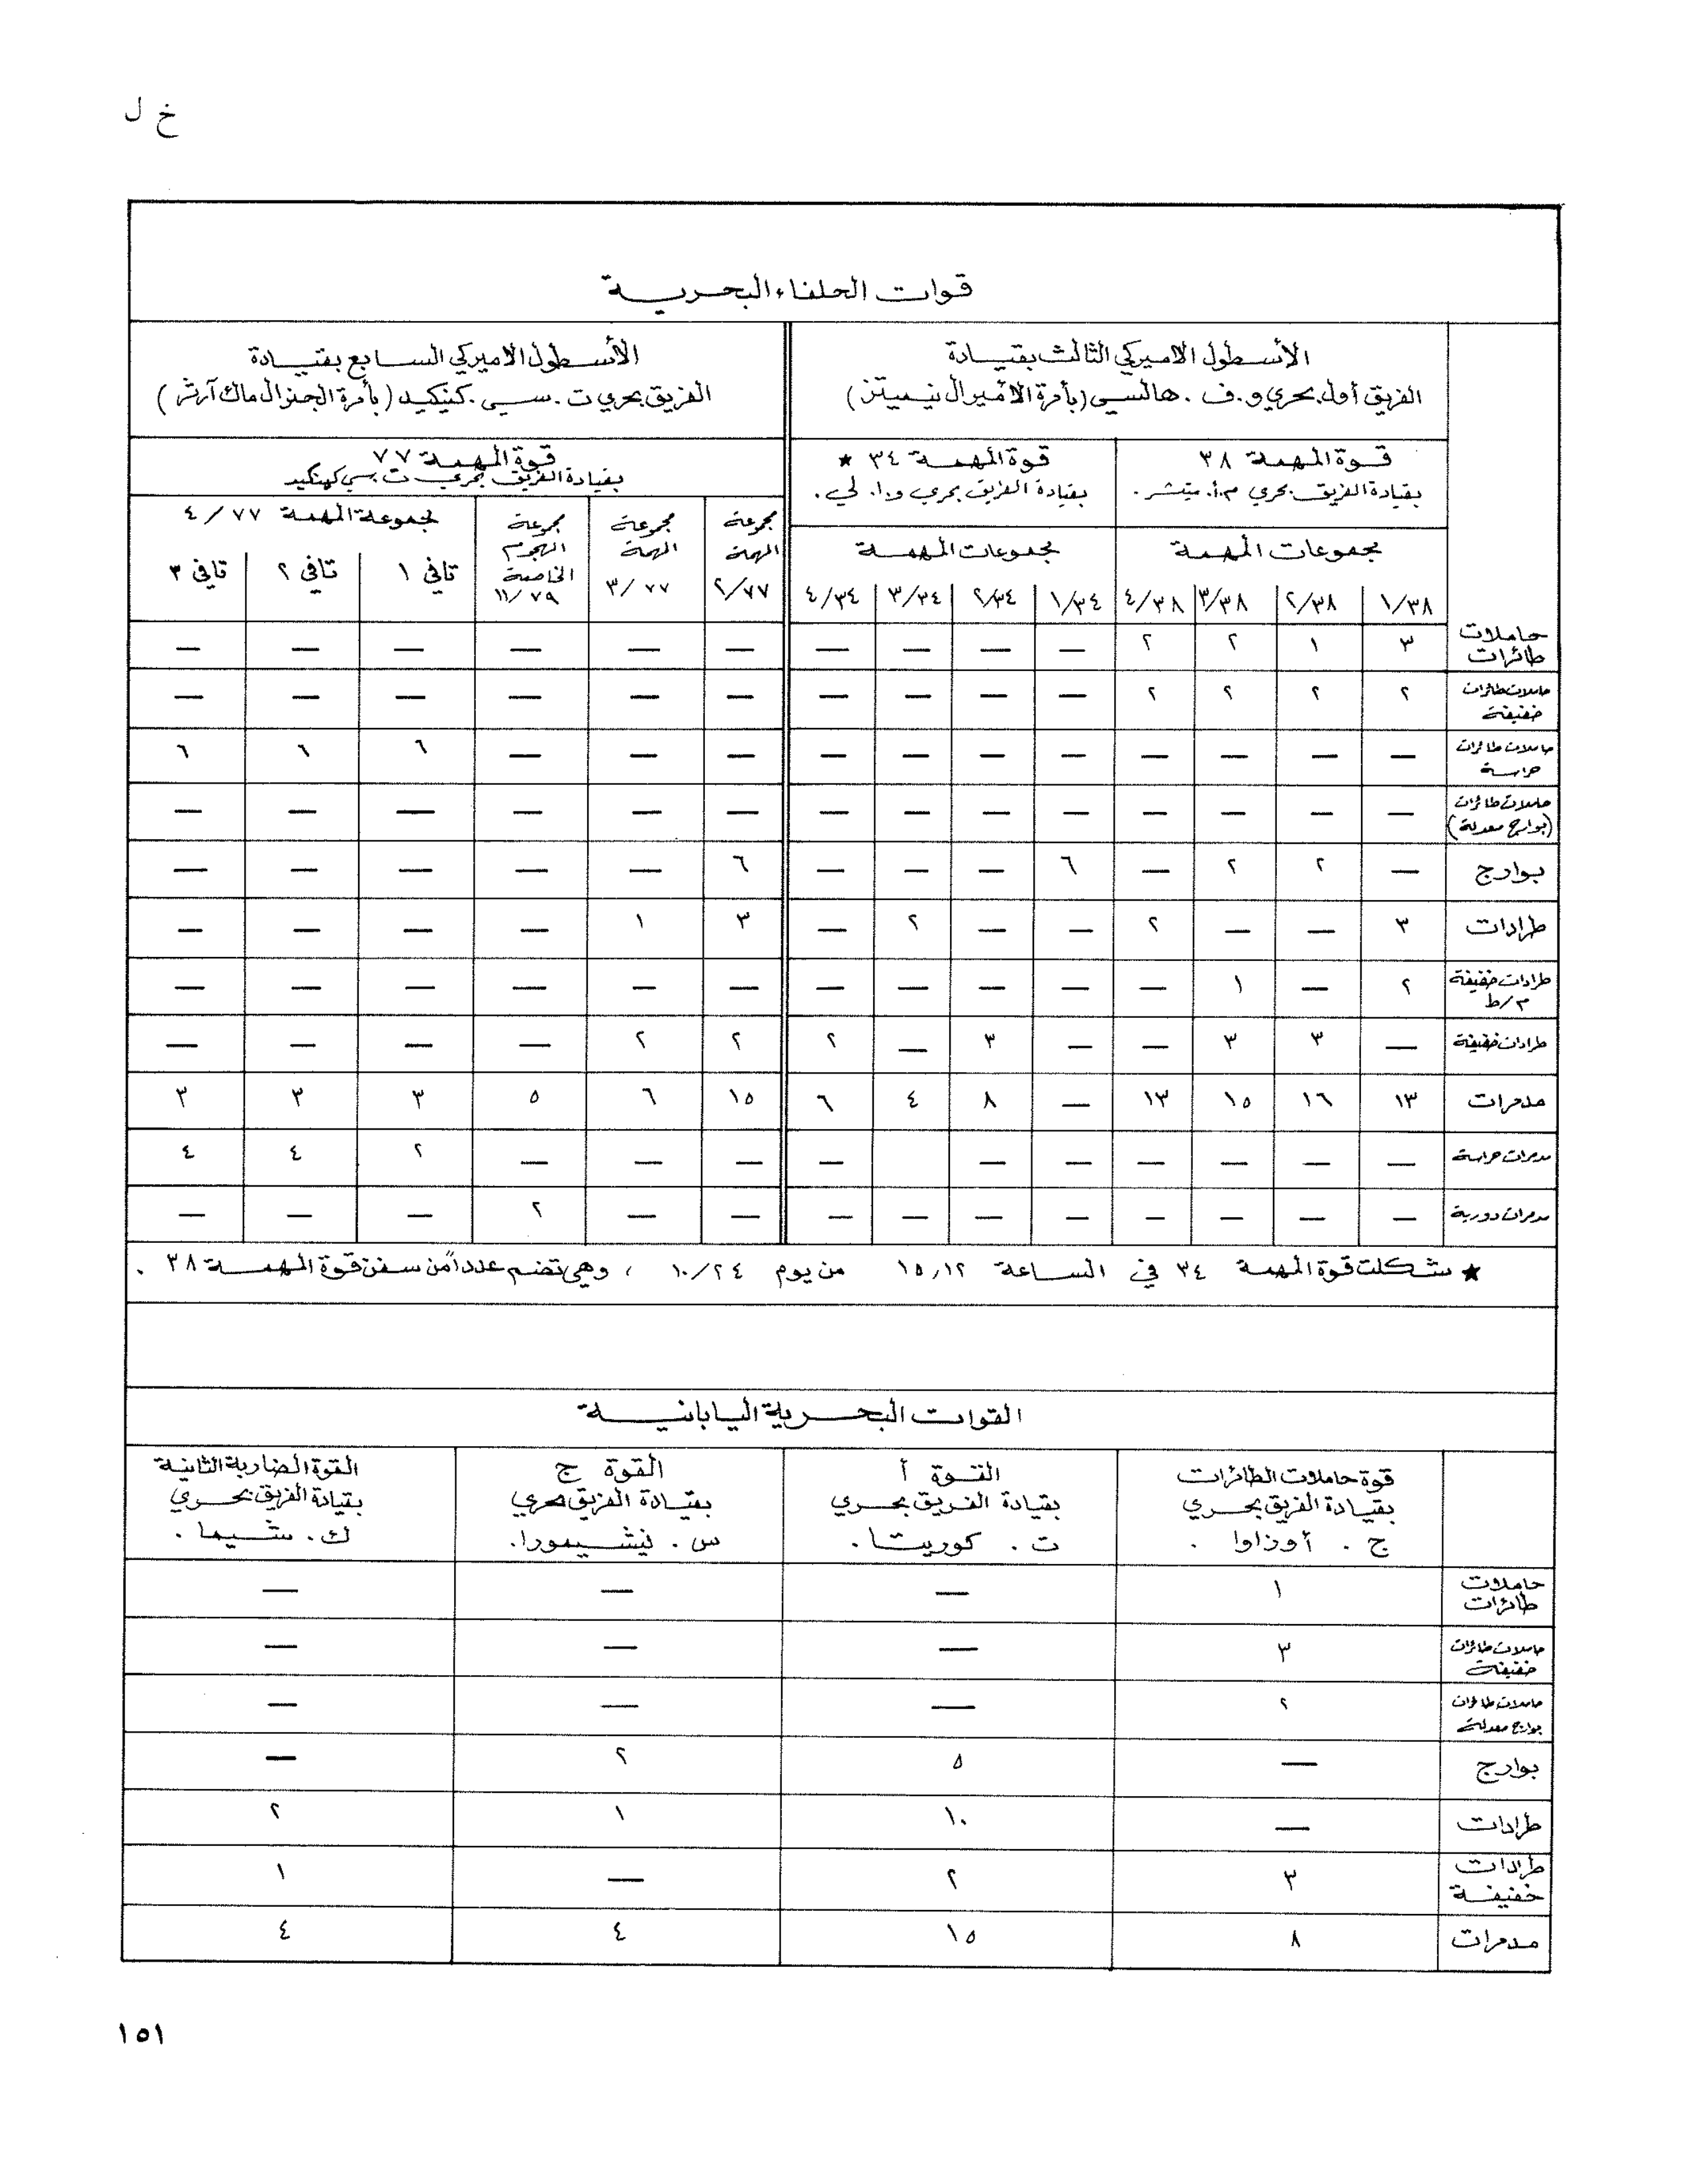 خ ل
قوات الحلفاء البحرية
الأسطول الاميركي الثالث بقيادة
الفريق أول بحري و. ف. هالسي (بأمرة الأميرال نيميتز)
الأسطول الاميركي السابع بقيادة
الفريق بحري ت. سي. كنيكيد (بأمرة الجنرال ماك آرثر)
قوة المهمة ٣٨
بقيادة الفريق بحري م.أ. ميتشر.
قوة المهمة ٣٤ ★
بقيادة الفريق بحري و.ا. لي.
قوة المهمة ٧٧
بقيادة الفريق بحري ت. سي كينكيد
مجموعات المهمة
مجموعات المهمة
مجموعة المهمة ٢/٧٧
مجموعة المهمة ٣/٧٧
مجموعة الهجوم الخاصة ١١/٧٩
مجموعة المهمة ٤/٧٧
١/٣٨ ٢/٣٨ ٣/٣٨ ٤/٣٨ ١/٣٤ ٢/٣٤ ٣/٣٤ ٤/٣٤ تافي ١ تافي ٢ تافي ٣
حاملات طائرات ٣ ١ ٢ ٢ — — — — — — — — — —
حاملات طائرات خفيفة ٢ ٢ ٢ ٢ — — — — — — — — — —
حاملات طائرات حراسة — — — — — — — — — — — ٦ ٦ ٦
حاملات طائرات (بوارج معدلة) — — — — — — — — — — — — — —
بوارج — ٢ ٢ — ٦ — — — ٦ — — — — —
طرادات ٣ — — ٢ — — ٢ — ٣ ١ — — — —
طرادات خفيفة م/ط ٢ — ١ — — — — — — — — — — —
طرادات خفيفة — ٣ ٣ — — ٣ — ٢ ٢ ٢ — — — —
مدمرات ١٣ ١٦ ١٥ ١٣ — ٨ ٤ ٦ ١٥ ٦ ٥ ٣ ٣ ٣
مدمرات حراسة — — — — — — — — — — ٢ ٤ ٤
مدمرات دورية — — — — — — — — — — ٢ — — —
★ شكلت قوة المهمة ٣٤ في الساعة ١٥,١٢ من يوم ١٠/٢٤ ، وهي تضم عدداً من سفن قوة المهمة ٣٨ .
القوات البحرية اليابانية
قوة حاملات الطائرات
بقيادة الفريق بحري
ج . أوزاوا .
القوة أ
بقيادة الفريق بحري
ت . كوريتا .
القوة ج
بقيادة الفريق بحري
س . نيشيمورا.
القوة الضاربة الثانية
بقيادة الفريق بحري
ك . شيما .
حاملات طائرات ١ — — —
حاملات طائرات خفيفة ٣ — — —
حاملات طائرات بوارج معدلة ٢ — — —
بوارج — ٥ ٢ —
طرادات — ١٠ ١ ٢
طرادات خفيفة ٣ ٢ — ١
مدمرات ٨ ١٥ ٤ ٤
١٥١